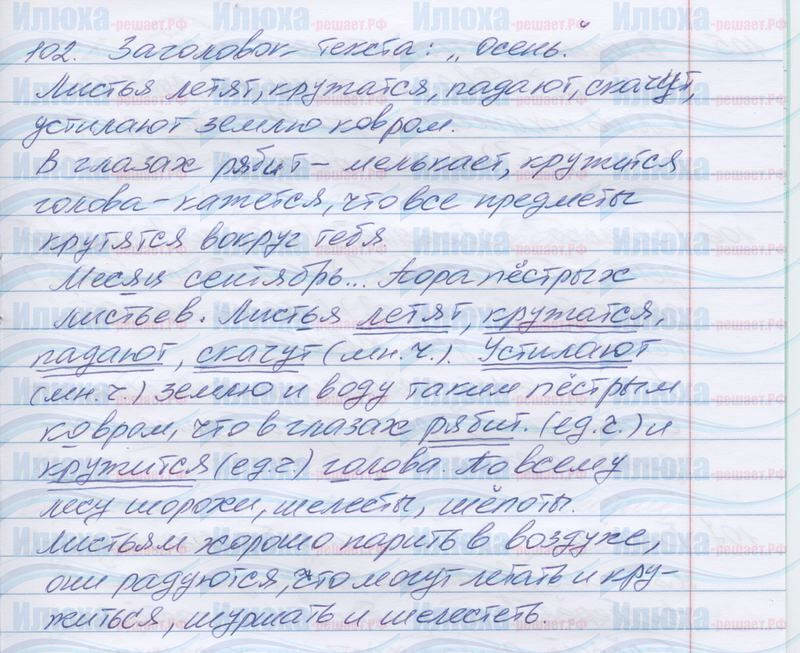 102. Заголовок текста: „Осень."
Листья летят, кружатся, падают, скачут,
устилают землю ковром.
В глазах рябит – мелькает, кружится
голова – кажется, что все предметы
крутятся вокруг тебя
Месяц сентябрь... Пора пёстрых
листьев. Листья летят, кружатся,
падают, скачут (мн.ч.). Устилают
(мн.ч.) землю и воду таким пёстрым
ковром, что в глазах рябит. (ед.ч.) и
кружится (ед.ч) голова. По всему
лесу шорохи, шелесты, шёпоты.
Листьям хорошо парить в воздухе,
они радуются, что могут летать и кру-
житься, шуршать и шелестеть.